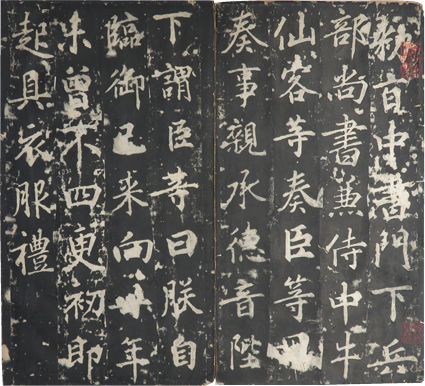 敕旨中書門下兵
部尚書兼侍中牛
仙客等奏臣等因
奏事親承德音陛
下謂臣等曰朕自
臨御已来向卅年
未曾不四更初即
起具衣服禮